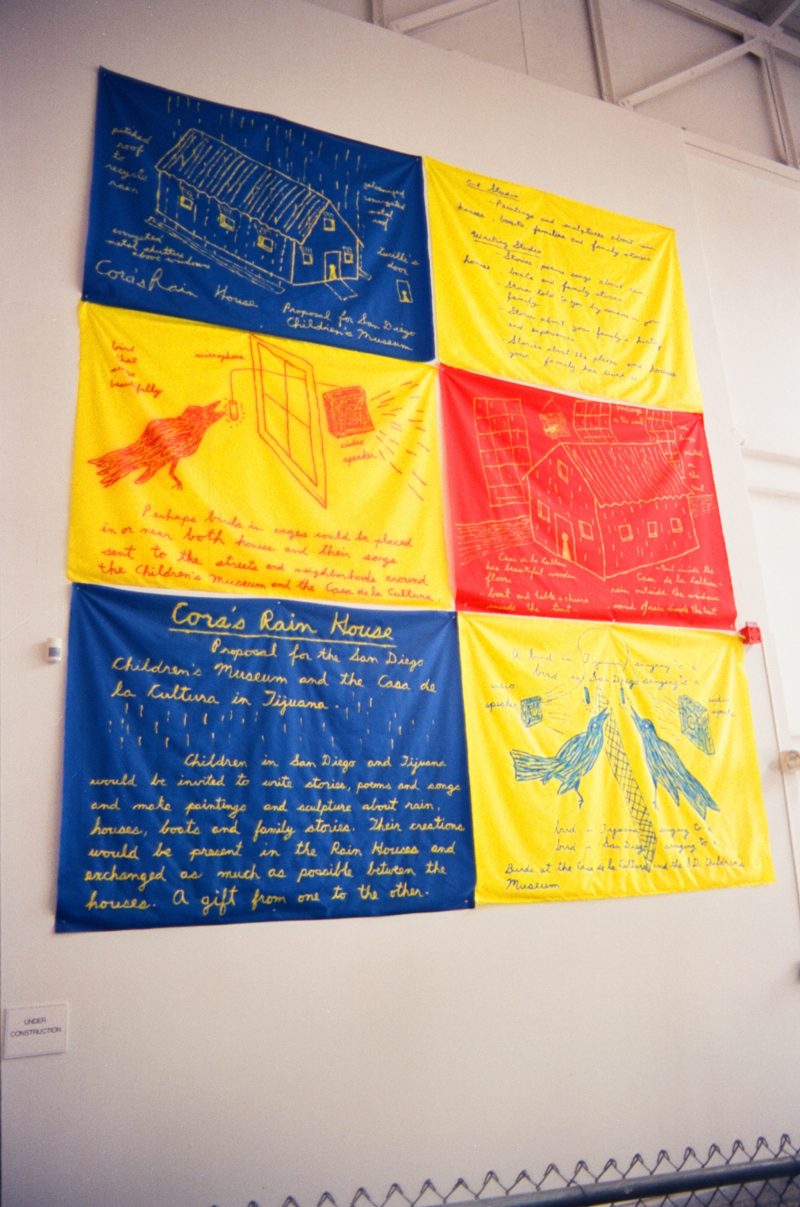 pitched
roof
to
recycle
rain
galvanized
corrugated
metal
roof
corrugated
metal shutters
above windows
Lucille's
door
Cora's Rain House
Proposal for San Diego
Children's Museum
Art Studio
- Paintings and sculptures about rain
houses, boats families and family stories
Writing Studio
- Stories poems songs about rain
houses boats and family stories
- Stories told to you by someone in your
family
- Stories about your family's history
and experience
Stories about the places and houses
your family has lived in
bird
that
sings
beautifully
microphone
audio
speaker
Perhaps birds in cages could be placed
in or near both houses and their songs
sent to the streets and neighborhoods around
the Children's Museum and the Casa de la Cultura.
Casa de la Cultura
has beautiful wooden
floor
boat and table + chairs
inside the tent
inside the
Casa de la Cultura
rain outside the windows
sound of rain inside the tent
Cora's Rain House
Proposal for the San Diego
Children's Museum and the Casa de
la Cultura in Tijuana.
Children in San Diego and Tijuana
would be invited to write stories, poems and songs
and make paintings and sculpture about rain,
houses, boats and family stories. Their creations
would be present in the Rain Houses and
exchanged as much as possible between the
houses. A gift from one to the other.
A bird in Tijuana singing to a
bird in San Diego singing to a
audio
speaker
audio
speaker
bird in Tijuana singing to a
bird in San Diego singing to a
Birds at the Casa de la Cultura and the S.D. Childrens
Museum
UNDER
CONSTRUCTION